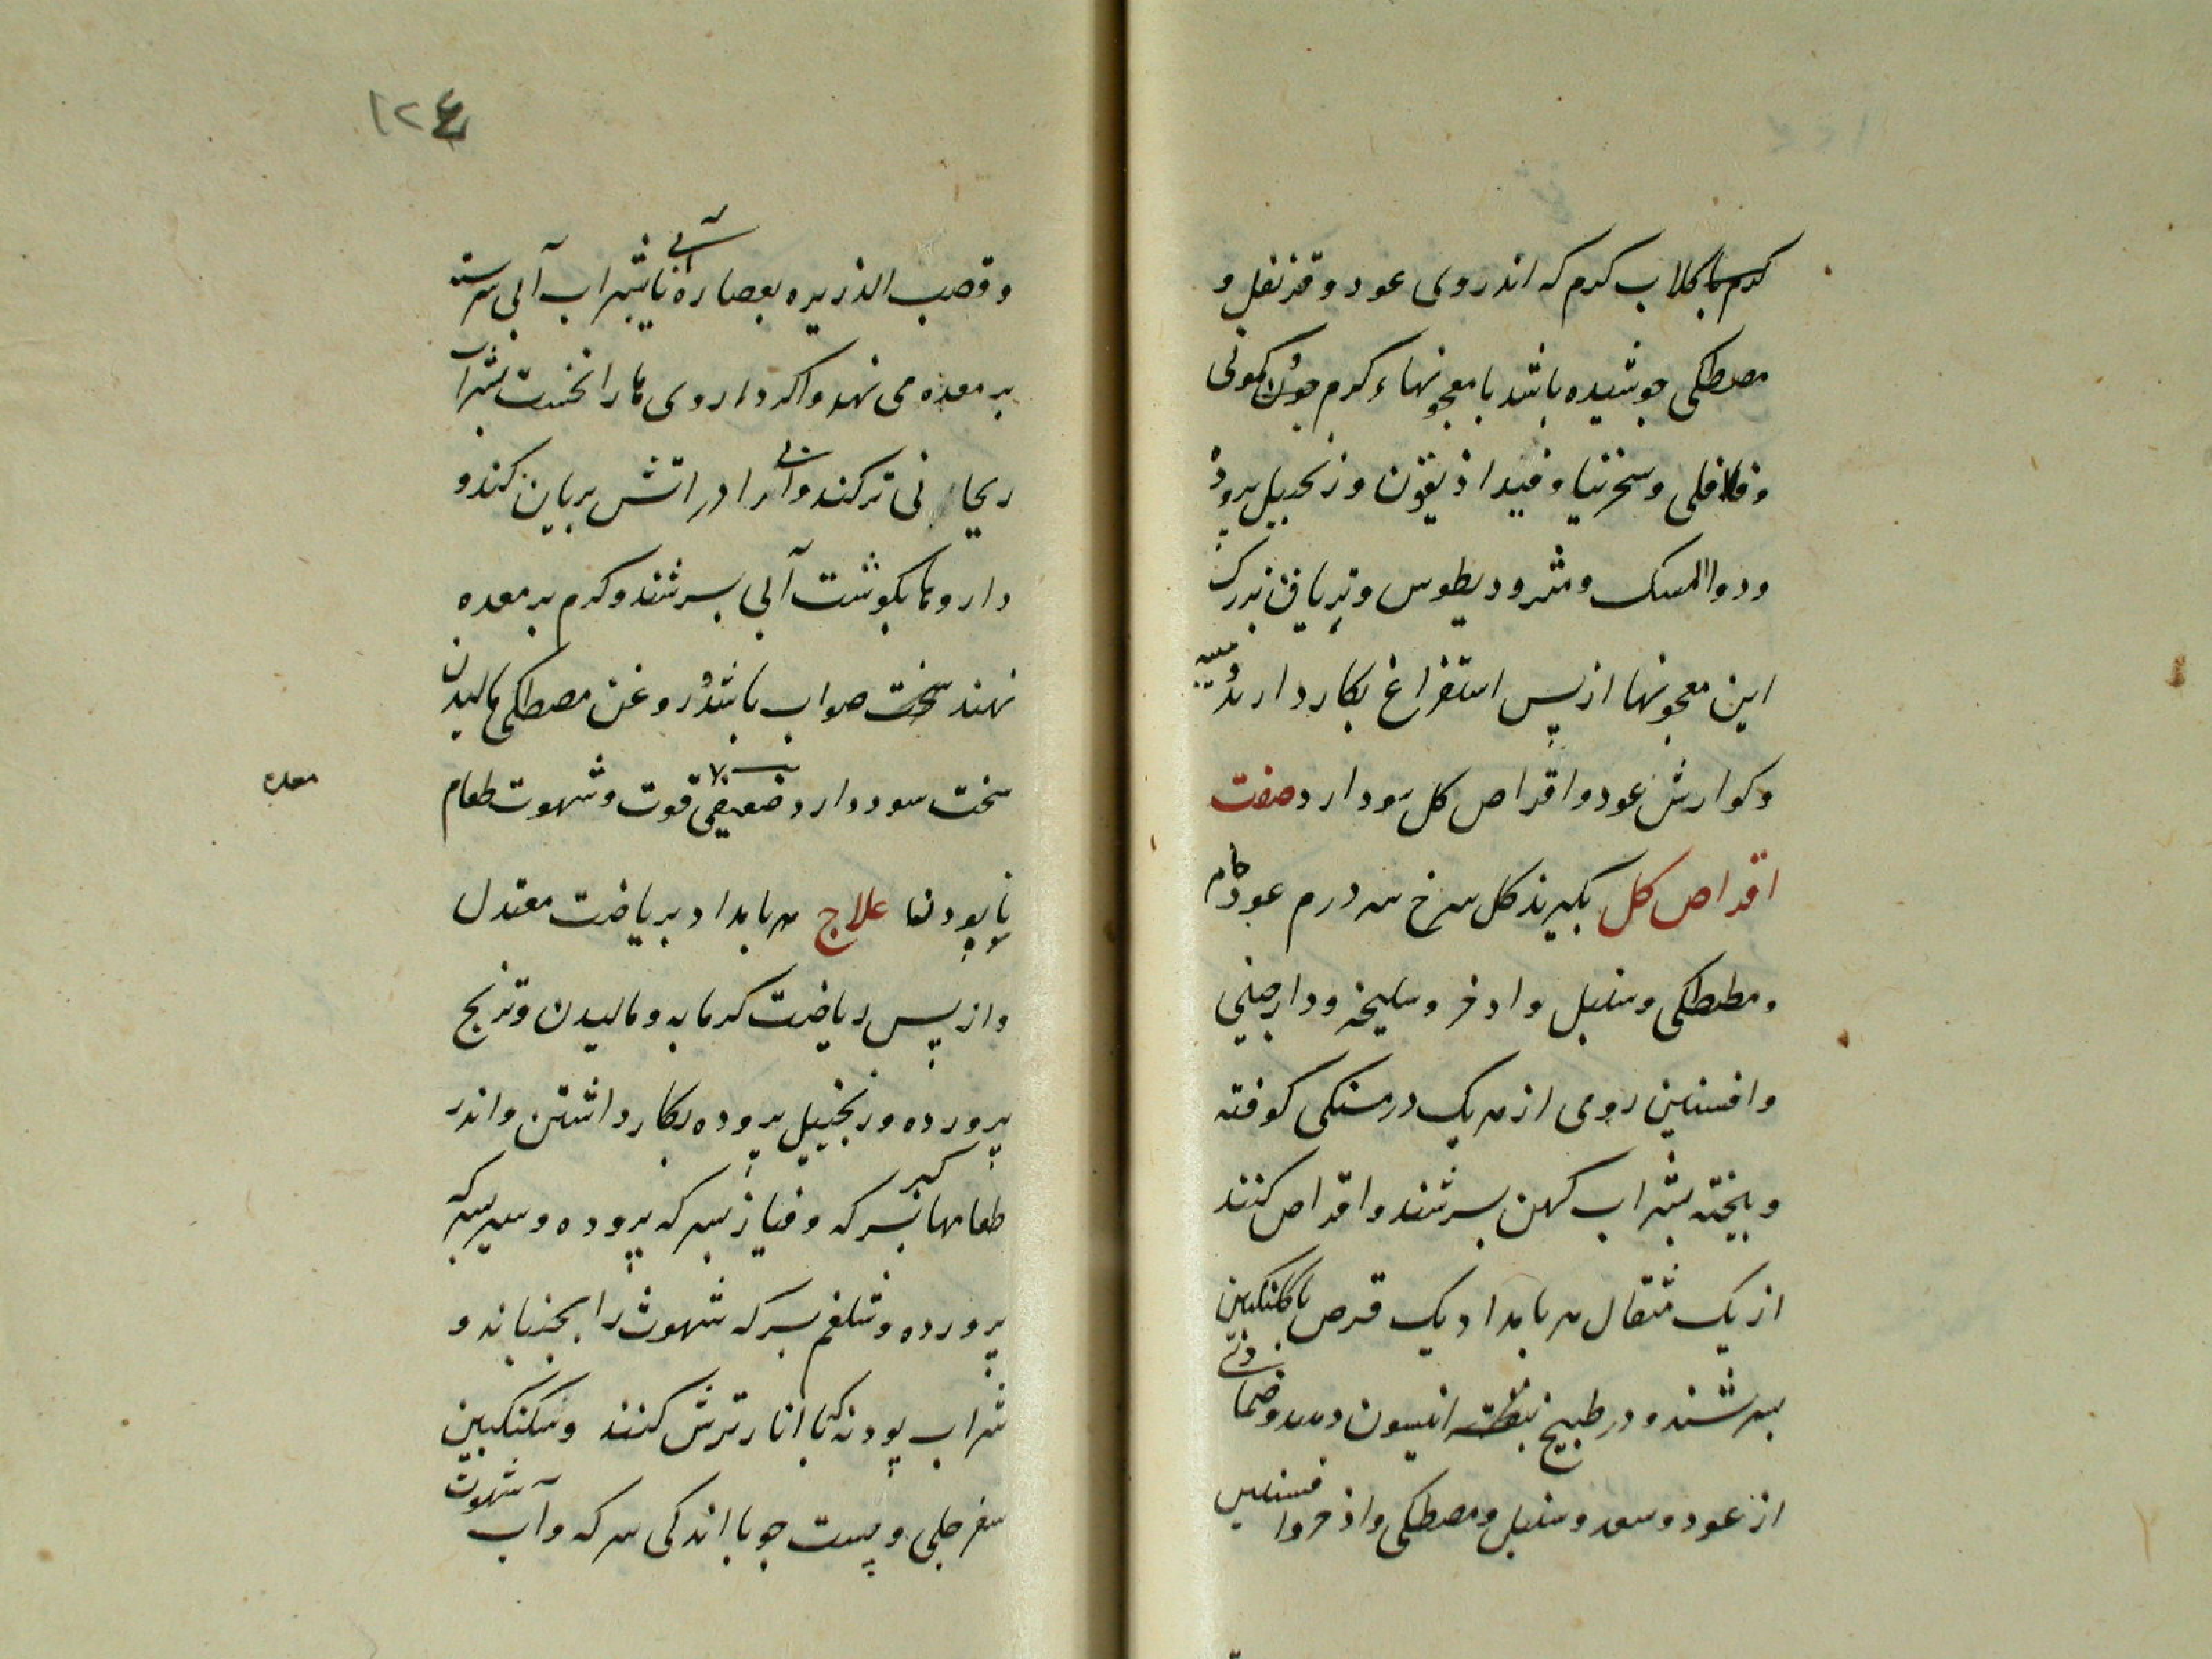 كرم با كلاب كرم كه اندر وى عود و قرنفل و
مصطكى جوشيده باشد با معجونهاء كرم چون كمونى
و فلافلى و سخرنيا و فيداذيقون و زنجبيل پرورد
و دواالمسك و مثروديطوس و ترياق بزرك
اين معجونها از پس استفراغ بكار دارند ميبه
و كوارش عود و اقراص كل سود دارد صفت
اقراص كل بكيرند كل سرخ سه درم عود خام
و مصطكى و سنبل و اذخر و سليخه و دارچينى
و افسنتين رومى از هر يك درمسنكى كوفته
و بيخته بشراب كهن بسرشند و اقراص كنند
از يك مثقال هر بامداد يك قرص با كلنكبين
بسرشند و در طبيخ انيسون دهند و ضمادى
از عود و سعد و سنبل و مصطكى و اذخر و افسنتين
١٢٤
و قصب الذريره بعصاره آبى يا بشراب آبى سرشته
بر معده مى نهد و اكر داروى ها را نخست بشراب
ريحانى تر كنند و آبى را در اتش بريان كنند و
داروها بكوشت آبى بسرشند و كرم بر معده
نهند سخت صواب باشد و روغن مصطكى ماليدن
سخت سود دارد ضعيفى قوت و شهوت طعام
معده
نابودن علاج هر بامداد برياضت معتدل
و از پس رياضت كرمابه و ماليدن و ترنج
پرورده و زنجبيل پروده بكار داشتن و اندر
طعامها كبر بسركه و پياز بسركه پروده و سير بسركه
پرورده و شلغم بسركه شهوت را بجنباند و
شراب پودنه كه با انار ترش كنند و سكنكبين
سفرجلى و پست جو با اندكى سركه و آب شهوت